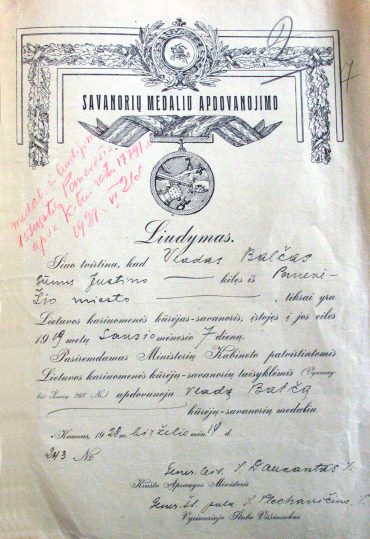 2
17
SAVANORIŲ MEDALIU APDOVANOJIMO
medal. ir liudym.
išsiųsta Panevėžio
apsk. K-tui raštu 17191
1931 - VI - 21 d
Liudymas.
Šiuo tvirtinu, kad Vladas Balčas
sūnus Justino kilęs iš Panevė-
žio miesto, tikrai yra
Lietuvos kariuomenės kūrėjas-savanoris, įstojęs į jos eiles
1919 metų Sausio mėnesio 7 dieną.
Pasiremdamas Ministerių Kabineto patvirtintomis
Lietuvos kariuomenės kūrėjų-savanorių taisyklėmis (Vyriausy-
bės Žinių 268 Nr.) apdovanoju Vladą Balčą
kūrėjų-savanorių medaliu
Kaunas, 1928 m. birželio mėn. 14 d.
243 Nr
Gener. leit. Daukantas
Krašto Apsaugos Ministeris
Gener. Št. pulk. Plechavičius
Vyriausiojo Štabo Viršininkas